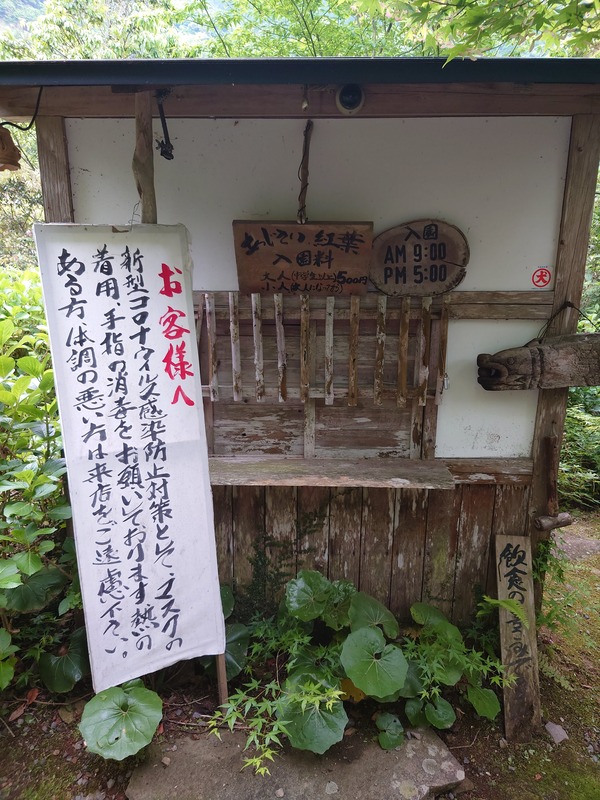 お客様へ
新型コロナウイルス感染防止対策として、マスクの
着用・手指の消毒をお願いしております熱の
ある方、体調の悪い方は来店をご遠慮下さい。
紅葉
入園料
大人
500円
小人
入園
AM 9:00
PM 5:00
犬
飲食の